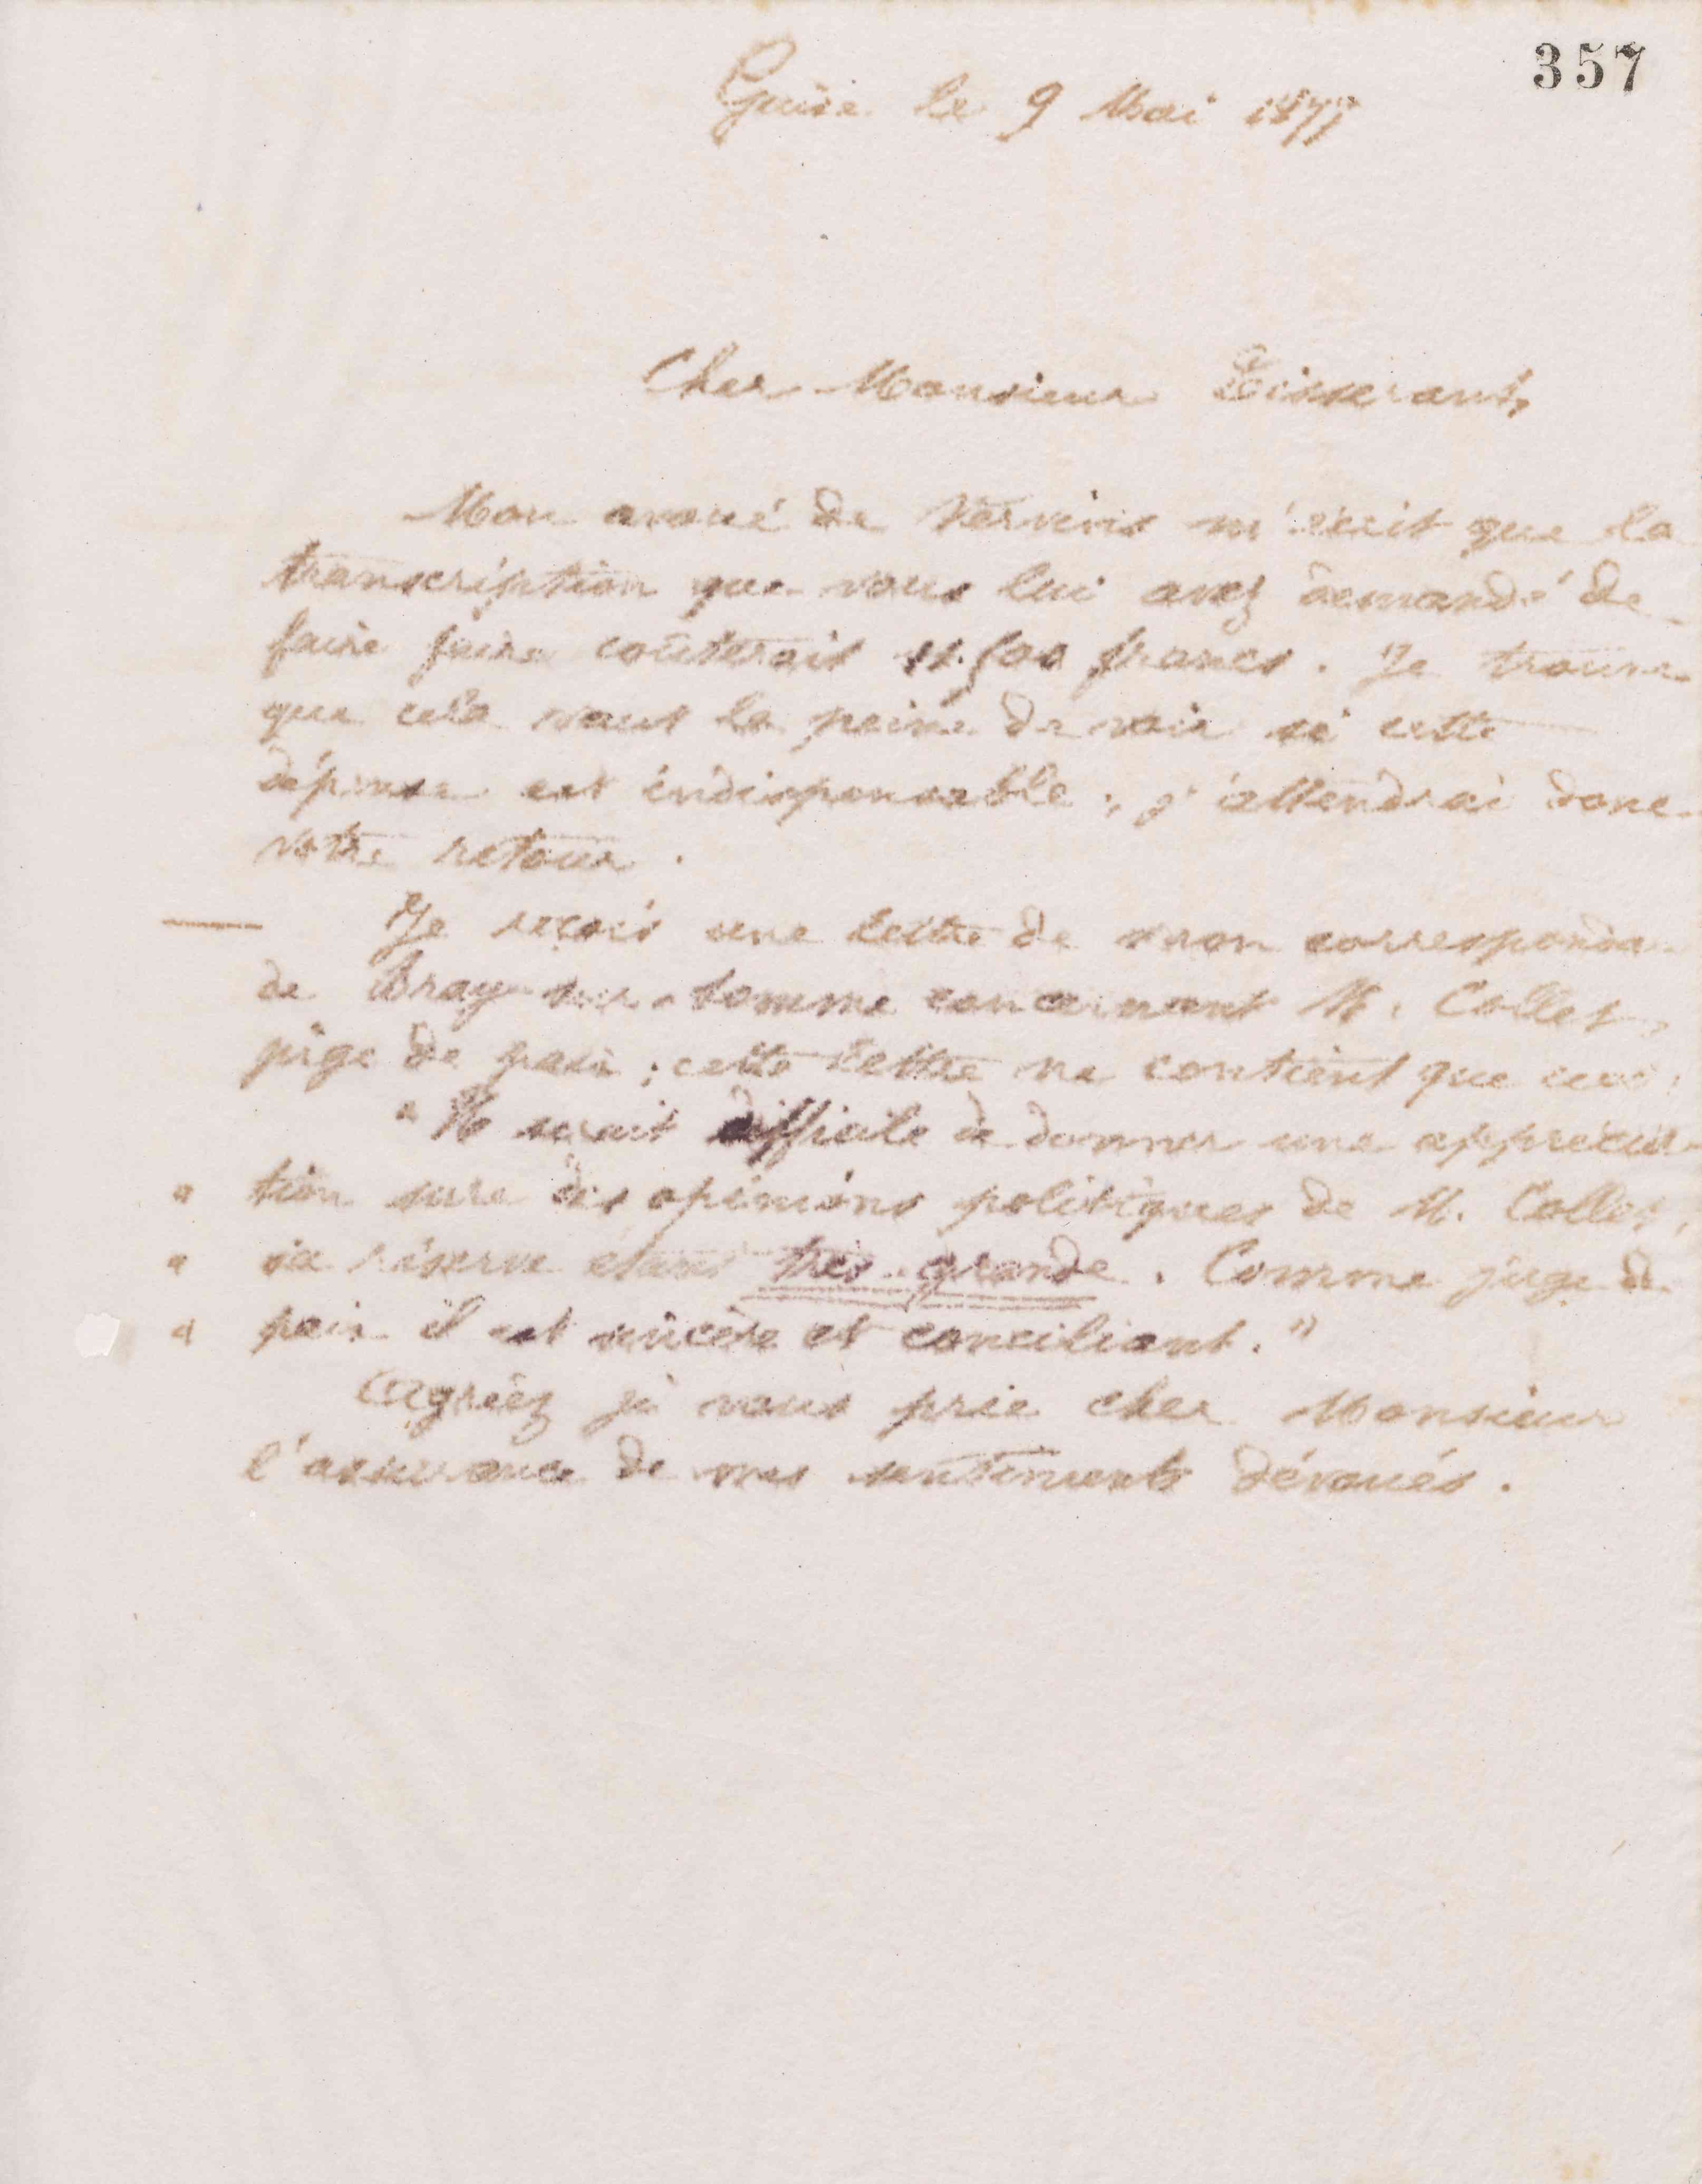 357
Guise le 9 Mai 1877
Cher Monsieur Tisserant,
Mon avoué de Vervins m'écrit que la
transcription que vous lui avez demandé de
faire faire coûterait francs. Je trouve
que cela vaut la peine de voir si cette
dépense est indispensable ; j'attendrai donc
votre retour.
Je reçois une lettre de mon
de Bray-sur-Somme concernant M. Collet,
juge de paix ; cette lettre ne contient que ceci :
"Il serait difficile de donner une apprécia-
" tion sure des opinions politiques de M. Collet,
" sa réserve étant très-grande. Comme juge de
" paix il est sincère et conciliant."
Agréez je vous prie cher Monsieur
l'assurance de mes sentiments dévoués.